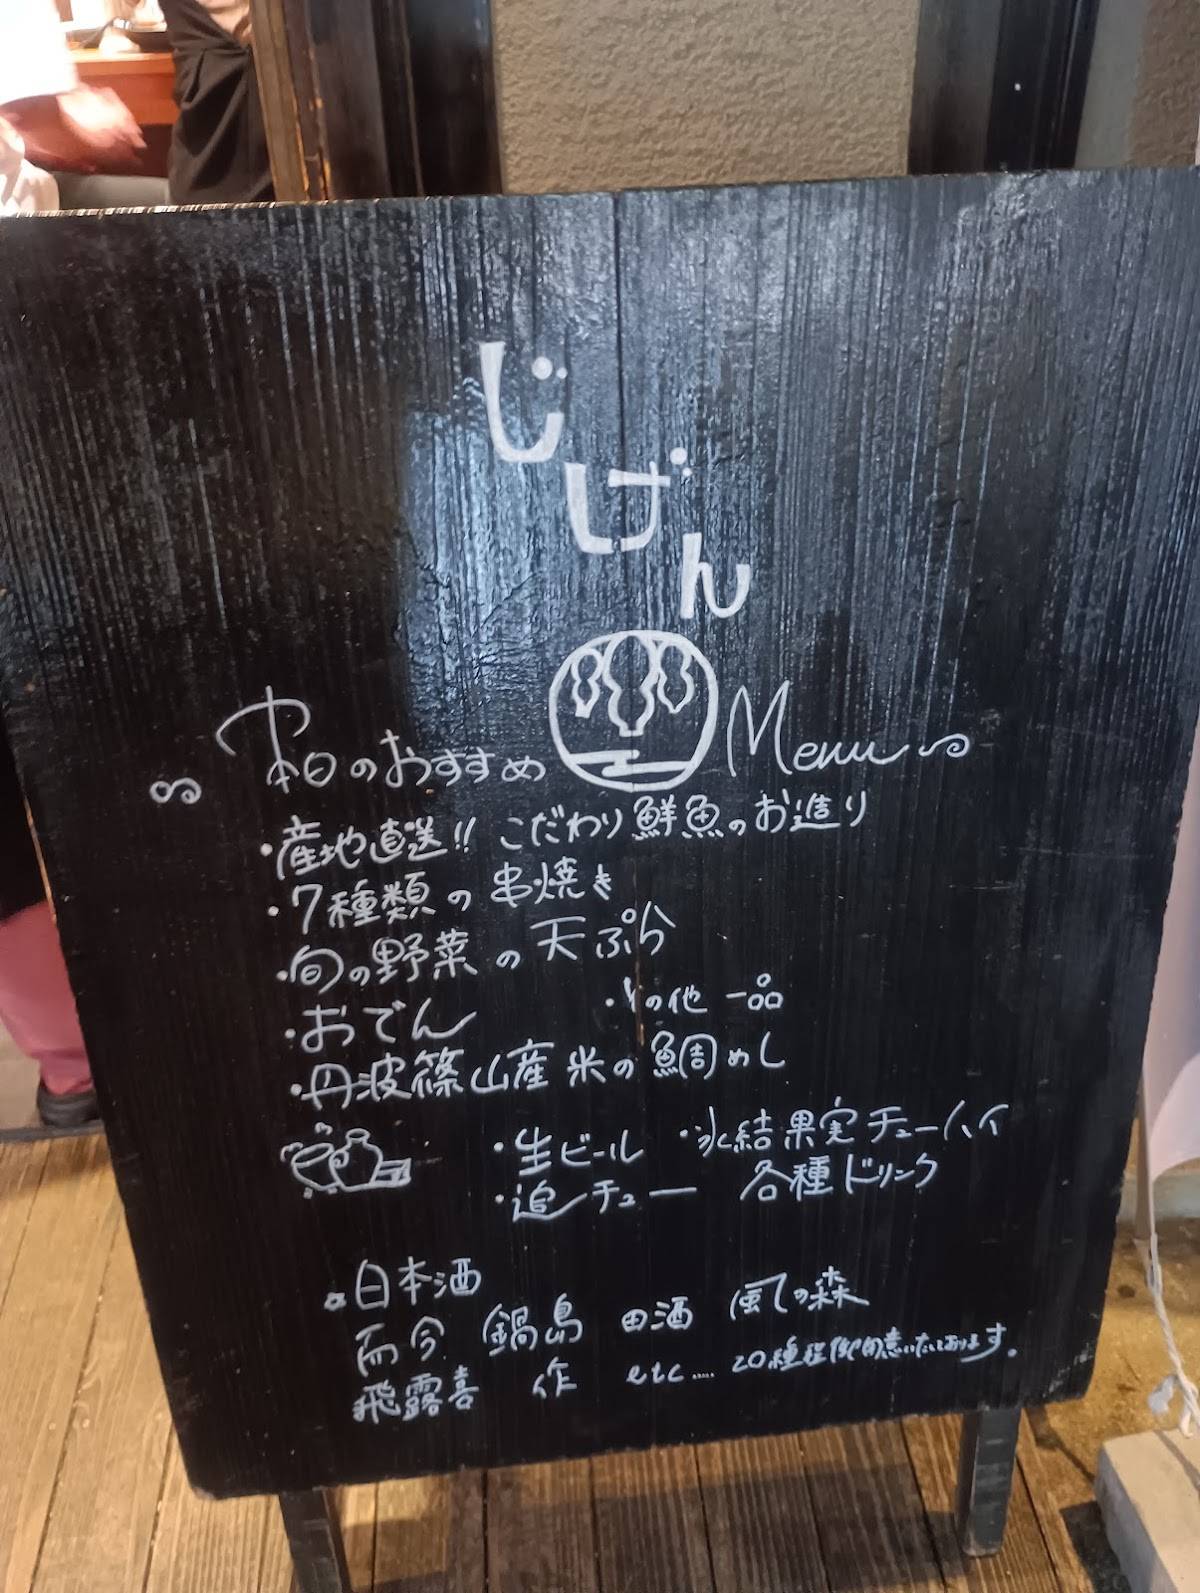 じげん
本日のおすすめ Menu
・産地直送!! こだわり鮮魚のお造り
・7種類の串焼き
・旬の野菜の天ぷら
・おでん ・その他一品
・丹波篠山産米の鯛めし
・生ビール ・氷結果実チューハイ
・追チュー 各種ドリンク
日本酒
而今 鍋島 田酒 風の森
飛露喜 作 etc..... 20種程御用意いたしております。